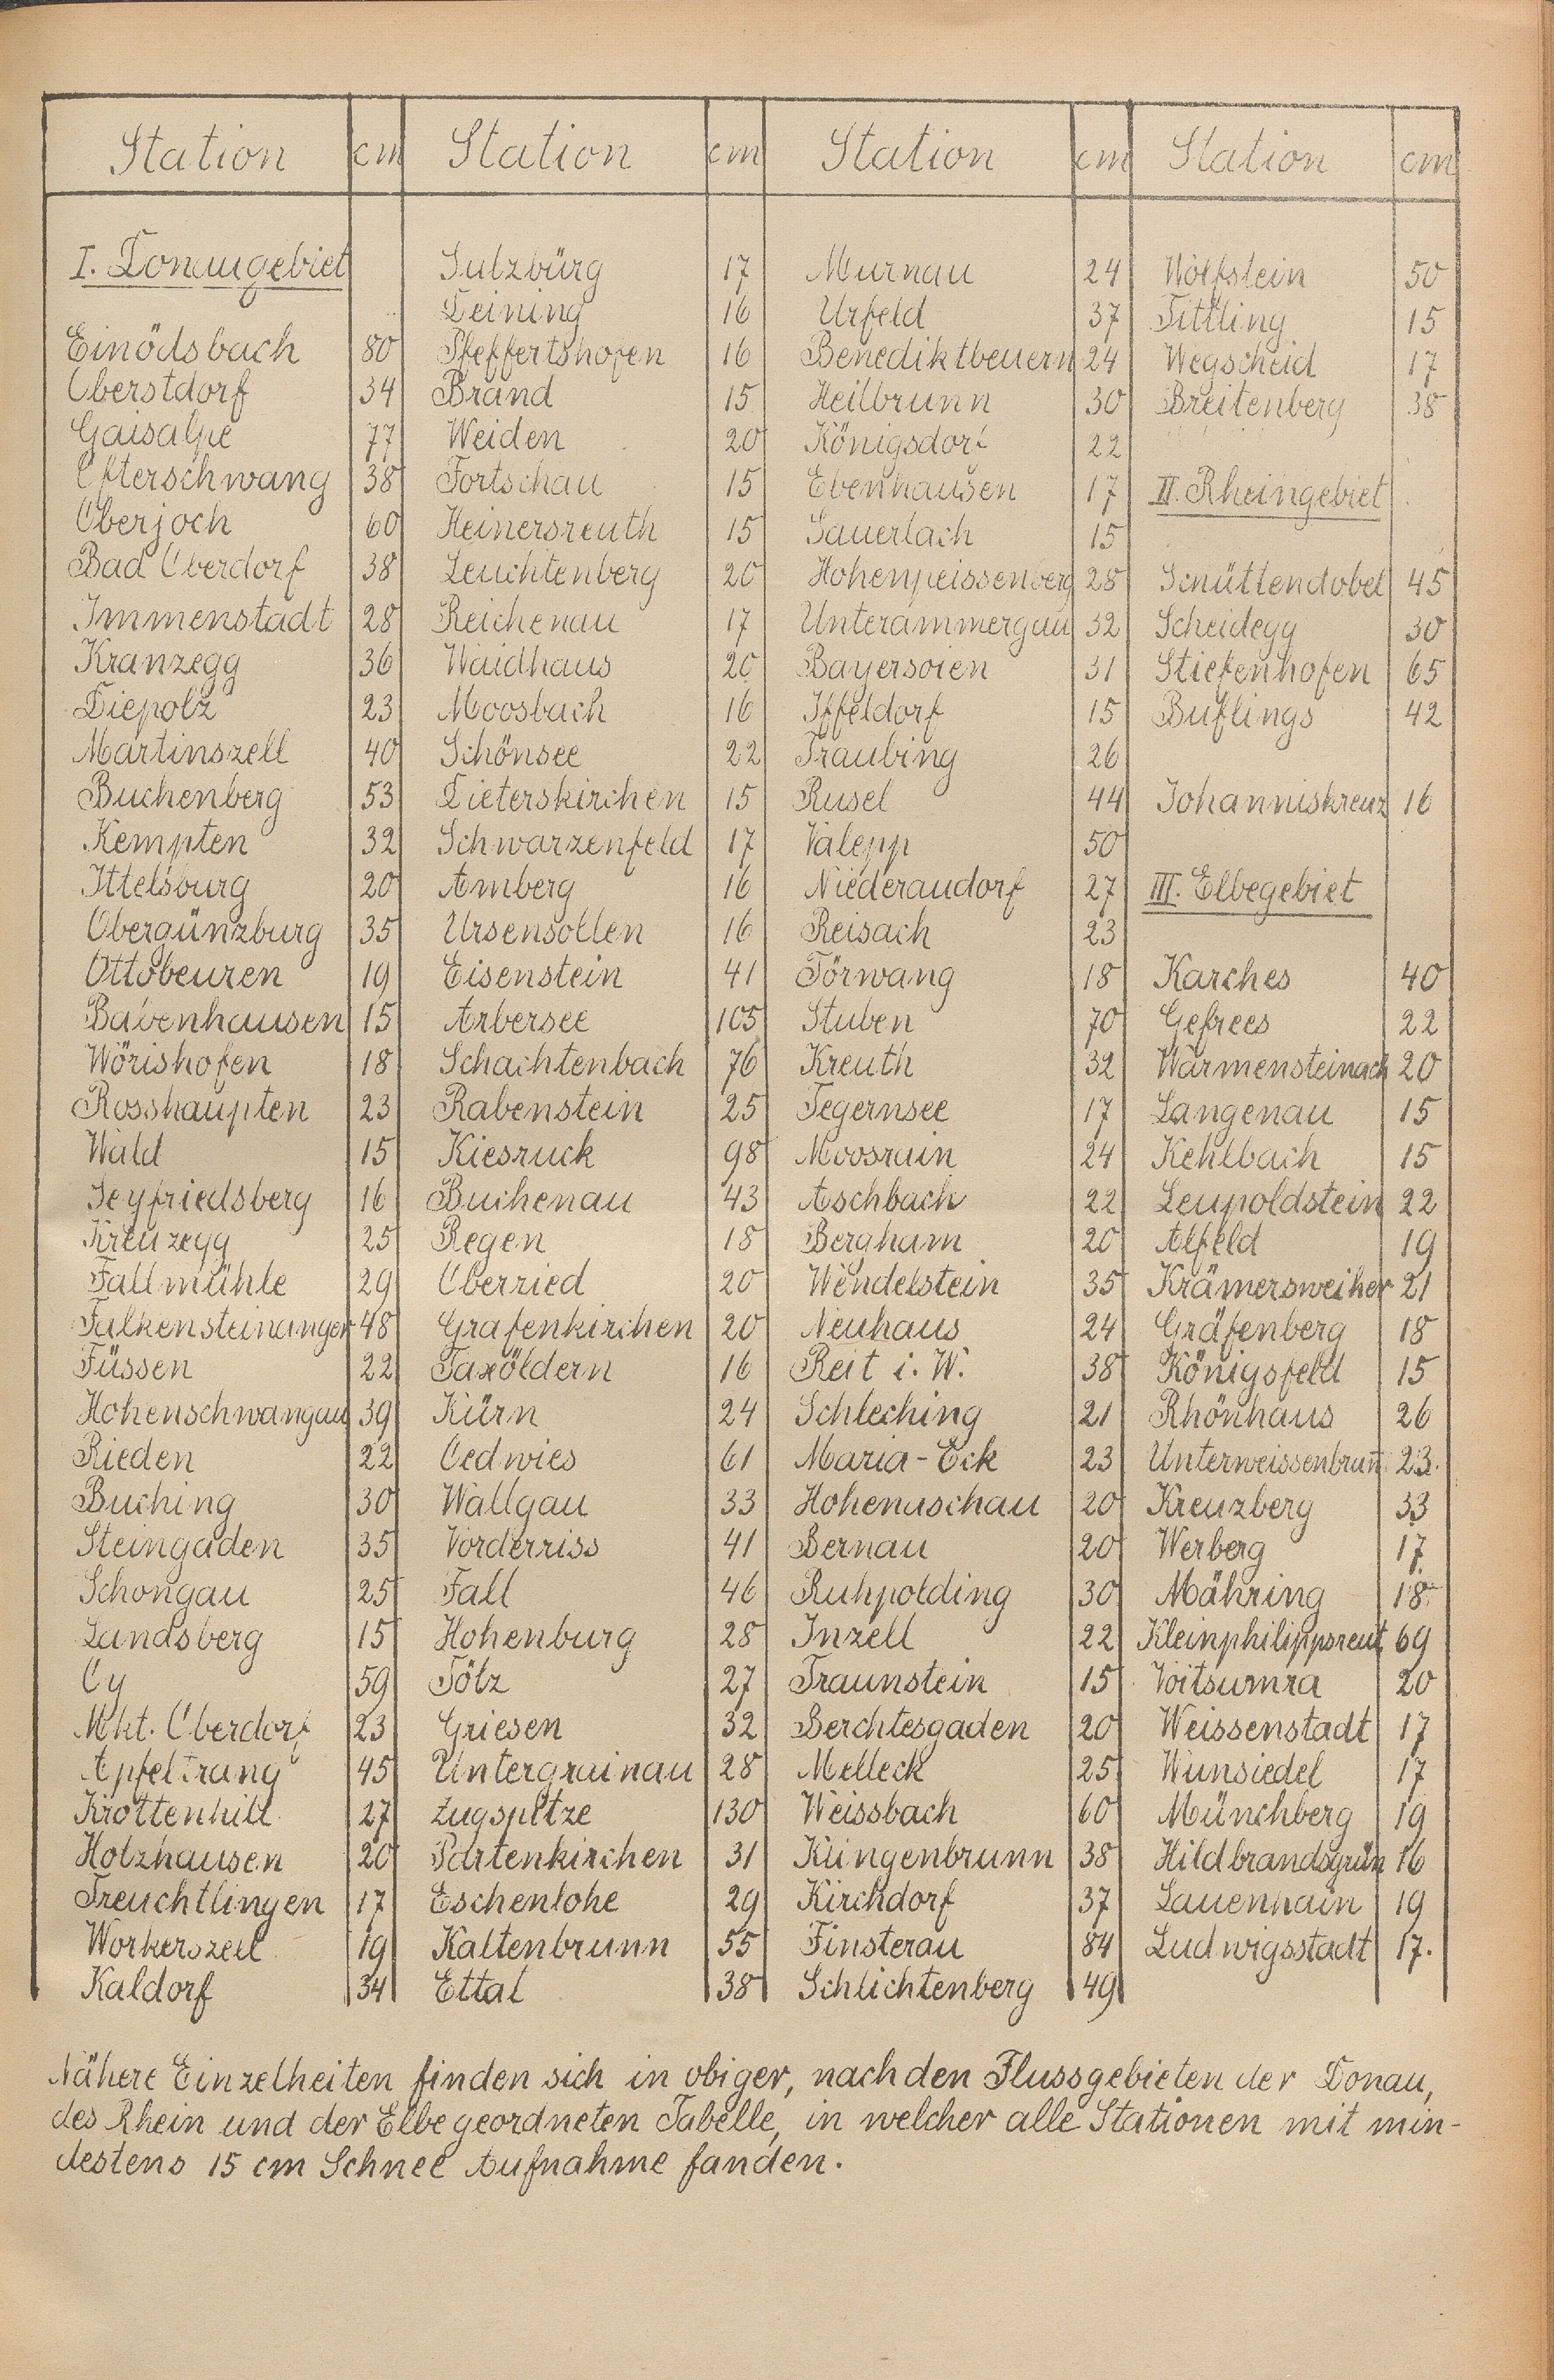 Station cm Station cm Station cm Station cm
I. Donaugebiet
Einödsbach 80
Oberstdorf 34
Gaisalpe 77
Ofterschwang 38
Oberjoch 60
Bad Oberdorf 38
Immenstadt 28
Kranzegg 36
Diepolz 23
Martinszell 40
Buchenberg 53
Kempten 32
Ittelsburg 20
Obergünzburg 35
Ottobeuren 19
Babenhausen 15
Wörishofen 18
Rosshaupten 23
Wald 15
Seyfriedsberg 16
Kreuzegg 25
Fallmühle 29
Falkensteinanger 48
Füssen 22
Hohenschwangau 39
Rieden 22
Buching 30
Steingaden 35
Schongau 25
Landsberg 15
Oy 59
Mkt. Oberdorf 23
Apfeltrang 45
Krottenhill 27
Holzhausen 20
Treuchtlingen 17
Workerszell 19
Kaldorf 34
Sulzbürg 17
Deining 16
Pfeffertshofen 16
Brand 15
Weiden 20
Fortschau 15
Heinersreuth 15
Leuchtenberg 20
Reichenau 17
Waidhaus 20
Moosbach 16
Schönsee 22
Dieterskirchen 15
Schwarzenfeld 17
Amberg 16
Ursensollen 16
Eisenstein 41
Arbersee 105
Schachtenbach 76
Rabenstein 25
Kiesruck 98
Buchenau 43
Regen 18
Oberried 20
Grafenkirchen 20
Taxöldern 16
Kürn 24
Oedwies 61
Wallgau 33
Vorderriss 41
Fall 46
Hohenburg 28
Tölz 27
Griesen 32
Untergrainau 28
Zugspitze 130
Partenkirchen 31
Eschenlohe 29
Kaltenbrunn 55
Ettal 38
Murnau 24
Urfeld 37
Benediktbeuern 24
Heilbrunn 30
Königsdorf 22
Ebenhausen 17
Sauerlach 15
Hohenpeissenberg 28
Unterammergau 32
Bayersoien 31
Iffeldorf 15
Traubing 26
Rusel 44
Valepp 50
Niederaudorf 27
Reisach 23
Törwang 18
Stuben 70
Kreuth 32
Tegernsee 17
Moosrain 24
Aschbach 22
Bergham 20
Wendelstein 35
Neuhaus 24
Reit i. W. 38
Schleching 21
Maria-Eck 23
Hohenaschau 20
Bernau 20
Ruhpolding 30
Inzell 22
Traunstein 15
Berchtesgaden 20
Melleck 25
Weissbach 60
Klingenbrunn 38
Kirchdorf 37
Finsterau 84
Schlichtenberg 49
Wolfstein 50
Tittling 15
Wegscheid 17
Breitenberg 38
II. Rheingebiet
Schüttendobel 45
Scheidegg 30
Stiefenhofen 65
Buflings 42
Johanniskreuz 16
III. Elbegebiet
Karches 40
Gefrees 22
Warmensteinach 20
Langenau 15
Kehlbach 15
Leupoldstein 22
Alfeld 19
Krämersweiher 21
Gräfenberg 18
Königsfeld 15
Rhönhaus 26
Unterweissenbrun̄ 23.
Kreuzberg 33
Werberg 17
Mähring 18
Kleinphilippsreut 69
Voitsumra 20
Weissenstadt 17
Wunsiedel 17
Münchberg 19
Hildbrandsgrün 16
Lauenhain 19
Ludwigsstadt 17.
Nähere Einzelheiten finden sich in obiger, nach den Flussgebieten der Donau,
des Rhein und der Elbe geordneten Tabelle, in welcher alle Stationen mit min-
destens 15 cm Schnee Aufnahme fanden.